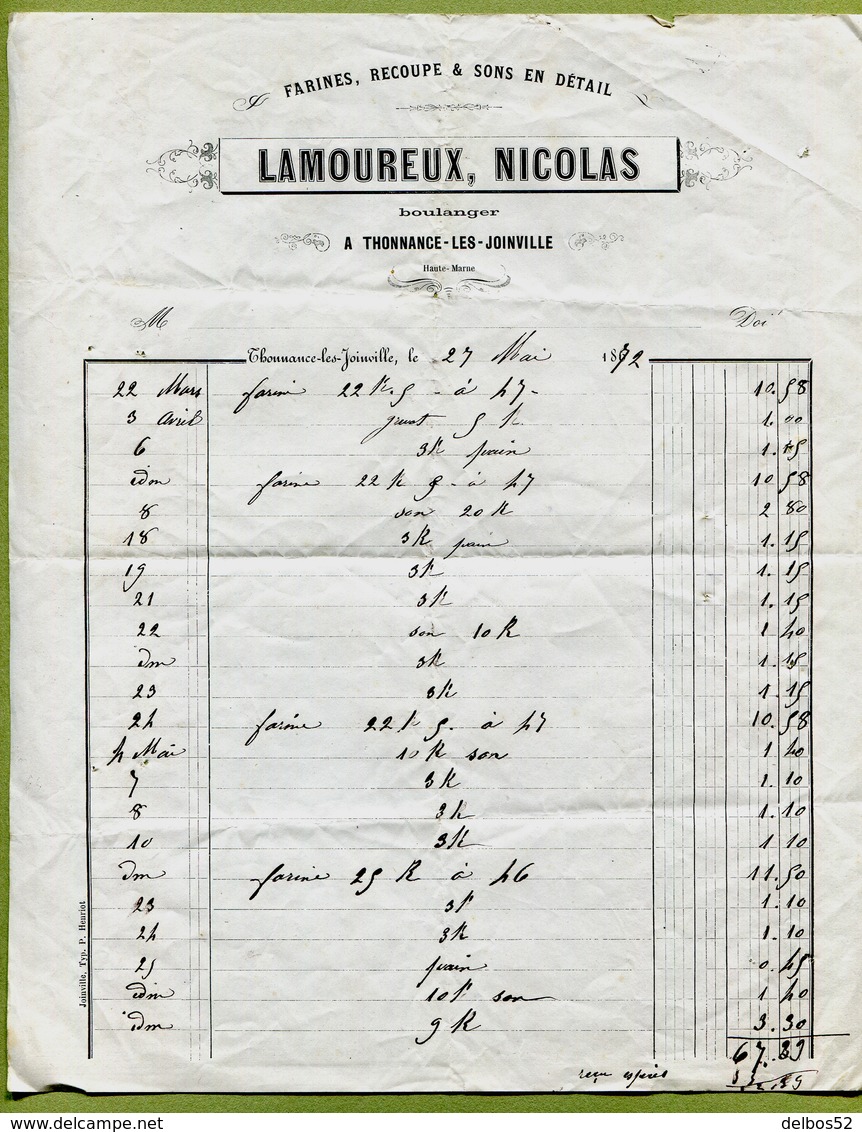 FARINES, RECOUPE & SONS EN DÉTAIL
LAMOUREUX, NICOLAS
boulanger
A THONNANCE-LES-JOINVILLE
Haute-Marne
M Doi
Thonnance-les-Joinville, le 27 Mai 1872
22 Mars farine 22 k. 5 - à 47 - 10.58
3 avril 5 k. 1.00
6 3K pain 1.15
idm farine 22 K 5 - à 47 10.58
8 son 20 K 2 80
18 3K pain 1.15
19 3K 1.15
21 3K 1.15
22 son 10 K 1 40
dm 3K 1.15
23 3K 1.15
24 farine 22 K 5. à 47 10.58
4 Mai 10 K son 1 40
7 3K 1.10
8 3K 1.10
10 3K 1 10
dm farine 25 K à 46 11.50
23 3K 1.10
24 3K 1.10
25 pain 0.45
idm 10K son 1 40
idm 9 K 3.30
67.39
reçu
Joinville, Typ. P. Henriot
delbos52